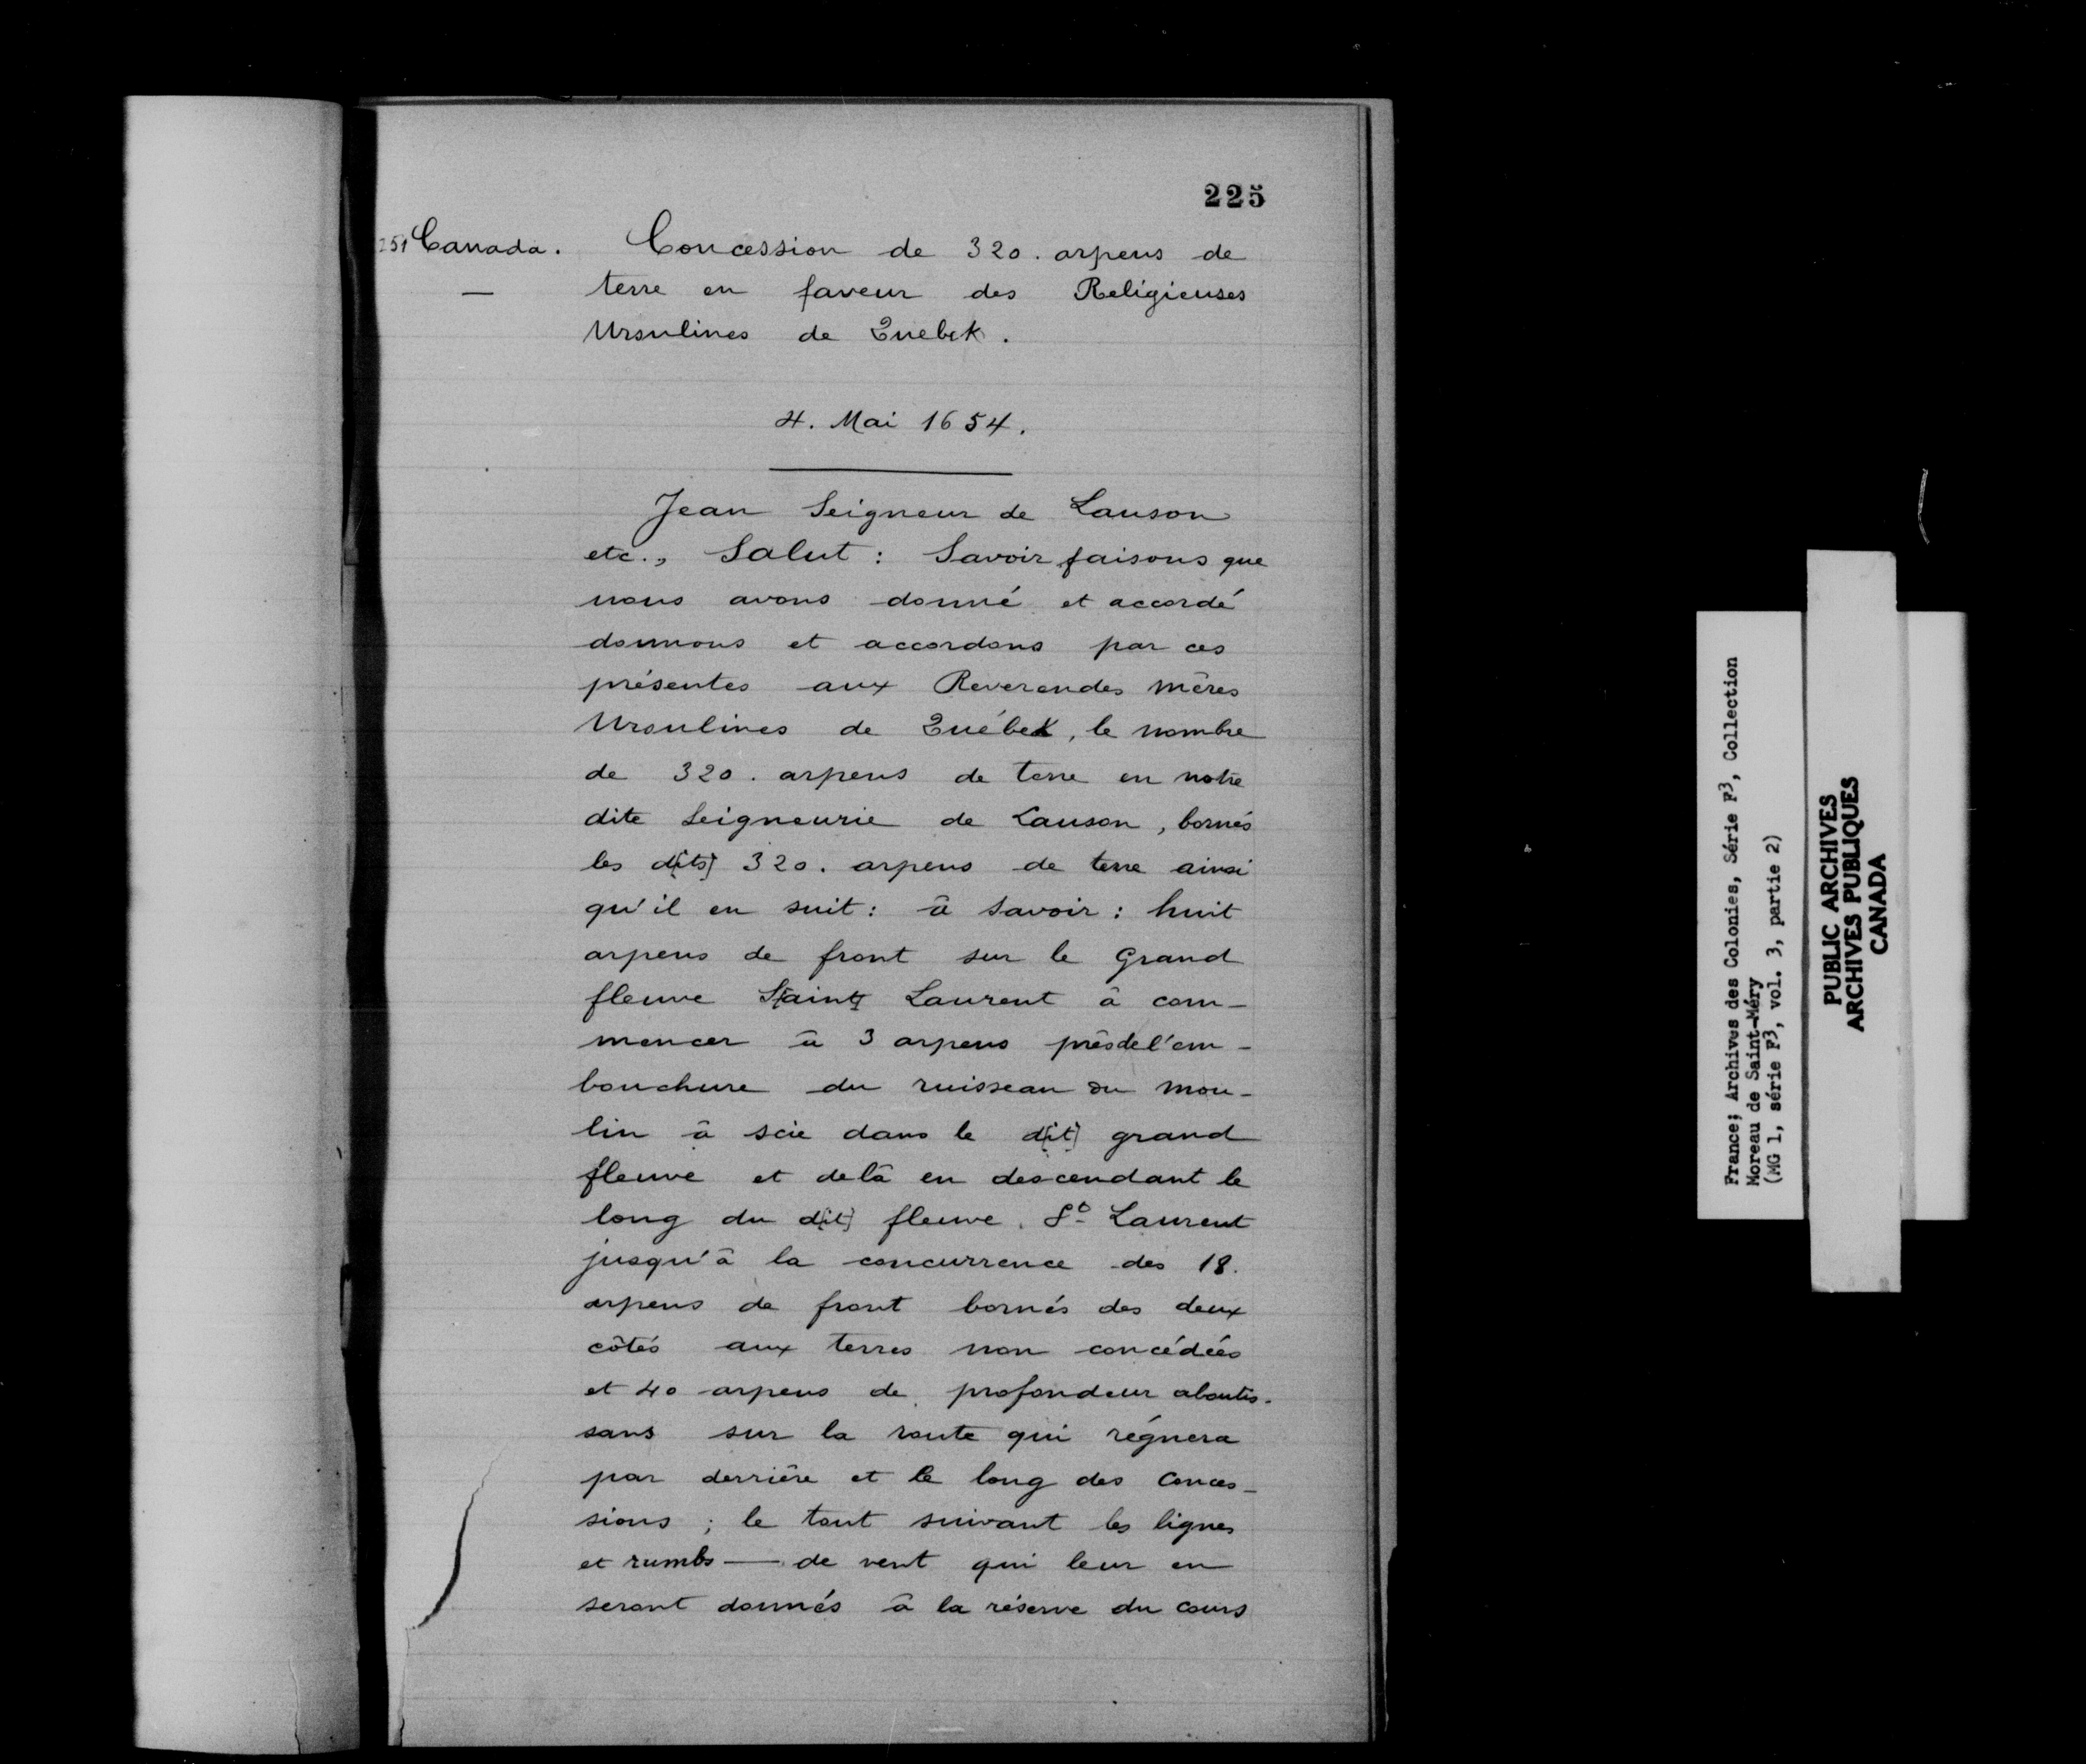 225
251 Canada.
Concession de 320. arpens de
terre en faveur des Religieuses
Ursulines de Quebek.
4. Mai 1654.
Jean Seigneur de Lauson
etc., Salut : Savoir faisons que
nous avons donné et accordé
donnons et accordons par ces
présentes aux Reverendes mères
Ursulines de Québek, le nombre
de 320. arpens de terre en notre
dite Seigneurie de Lauson, bornés
les d[its] 320. arpens de terre ainsi
qu'il en suit : à savoir : huit
arpens de front sur le Grand
fleuve S[aint] Laurent à com-
mencer à 3 arpens près de l'em-
bouchure du ruisseau du mou-
lin à scie dans le d[it] grand
fleuve et delà en descendant le
long du d[it] fleuve St Laurent
jusqu'à la concurrence des 18.
arpens de front bornés des deux
côtés aux terres non concédées
et 40 arpens de profondeur aboutis-
sans sur la route qui régnera
par derrière et le long des conces-
sions ; le tout suivant les lignes
et rumbs — de vent qui leur en
seront donnés à la réserve du cours
France; Archives des Colonies, Série F³, Collection
Moreau de Saint-Méry
(MG 1, série F³, vol. 3, partie 2)
PUBLIC ARCHIVES
ARCHIVES PUBLIQUES
CANADA